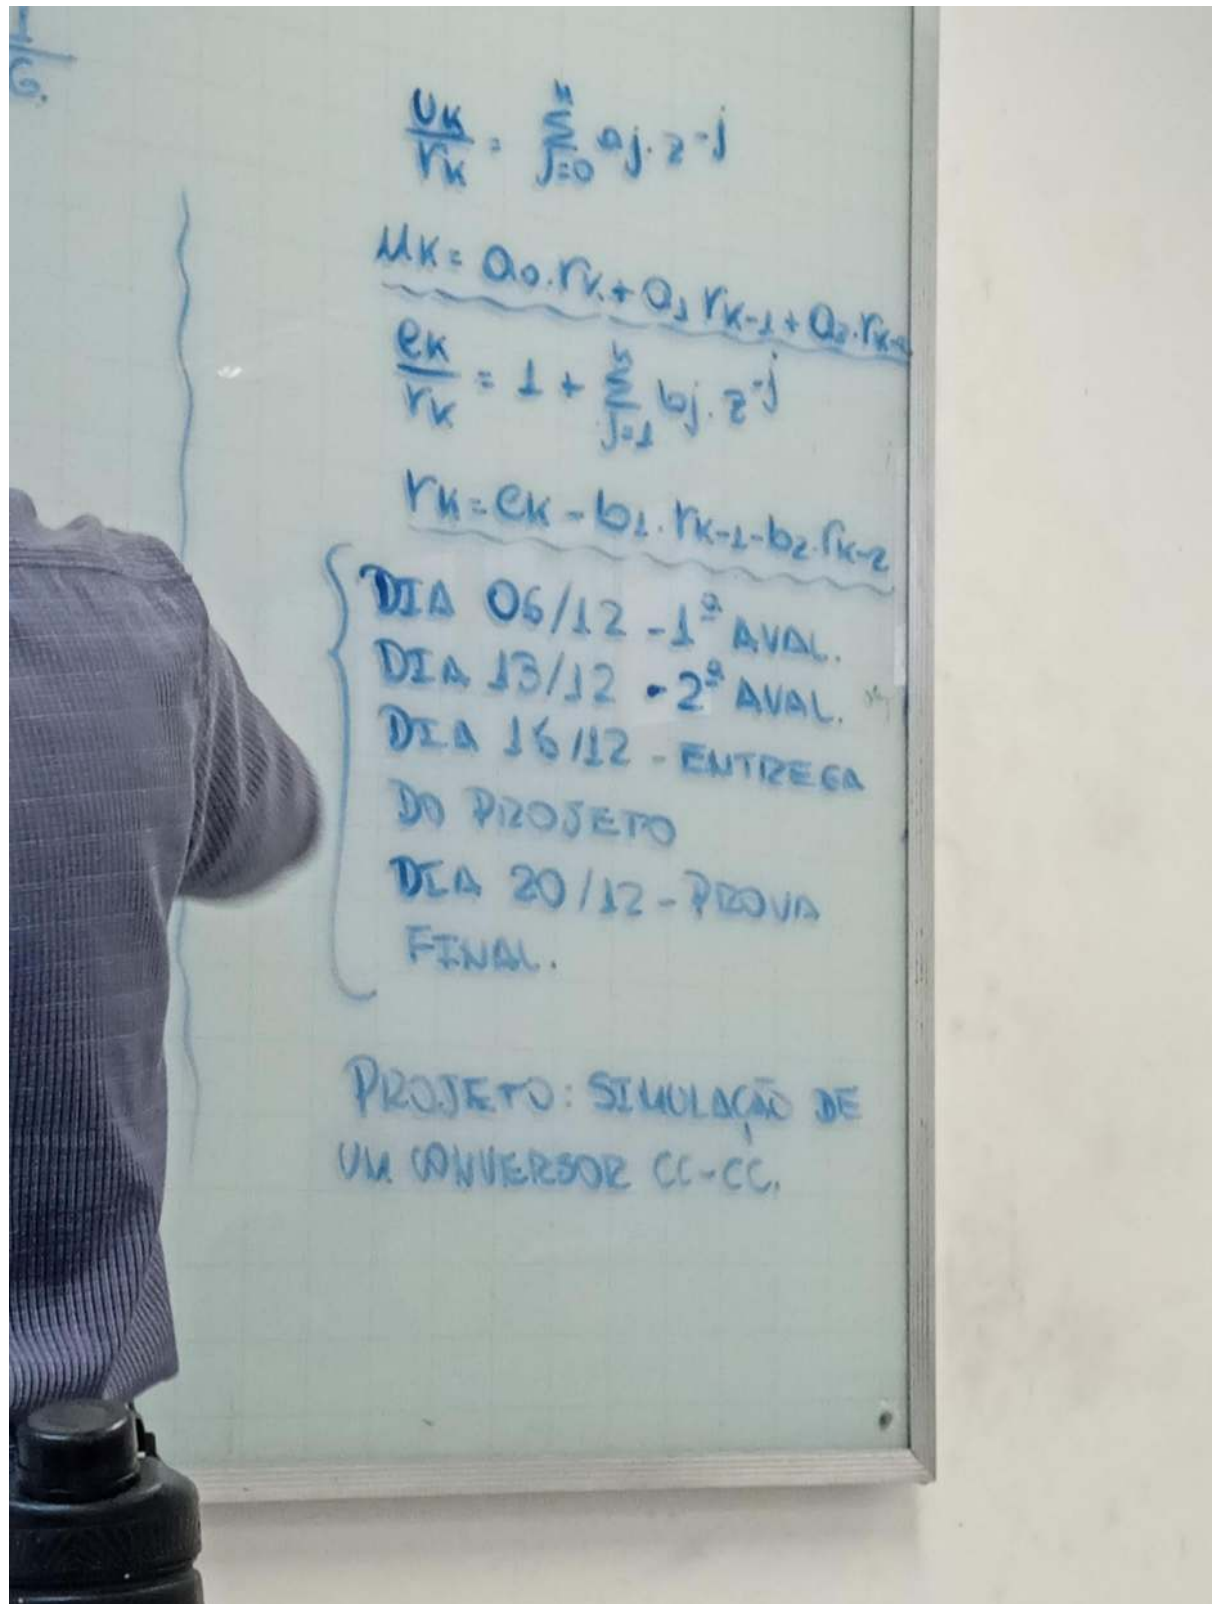 1
6.
UK/rK = Σ_{j=0}^{n} aj. z^-j
UK = a0.rK + a1 rK-1 + a2.rK-2
eK/rK = 1 + Σ_{j=1}^{n} bj. z^-j
rK = eK - b1. rK-1 - b2.rK-2
DIA 06/12 - 1ª AVAL.
DIA 13/12 - 2ª AVAL.
DIA 16/12 - ENTREGA
DO PROJETO
DIA 20/12 - PROVA
FINAL.
PROJETO: SIMULAÇÃO DE
UM CONVERSOR CC-CC.